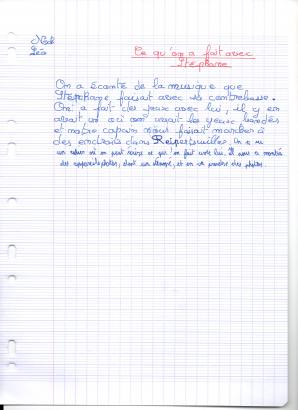 Noé
Léo
Ce qu'on a fait avec
Stéphane
On a écouté de la musique que
Stéphane faisait avec sa contrebasse.
On a fait des jeux avec lui, il y en
avait un où on avait les yeux bandés
et notre copain nous faisait marcher à
des endroits dans Reipertswiller. On a vu
un cahier où on peut écrire ce qu'on fait avec lui. Il nous a montré
des appareils photos, dont un démonté, et on va prendre des photos.